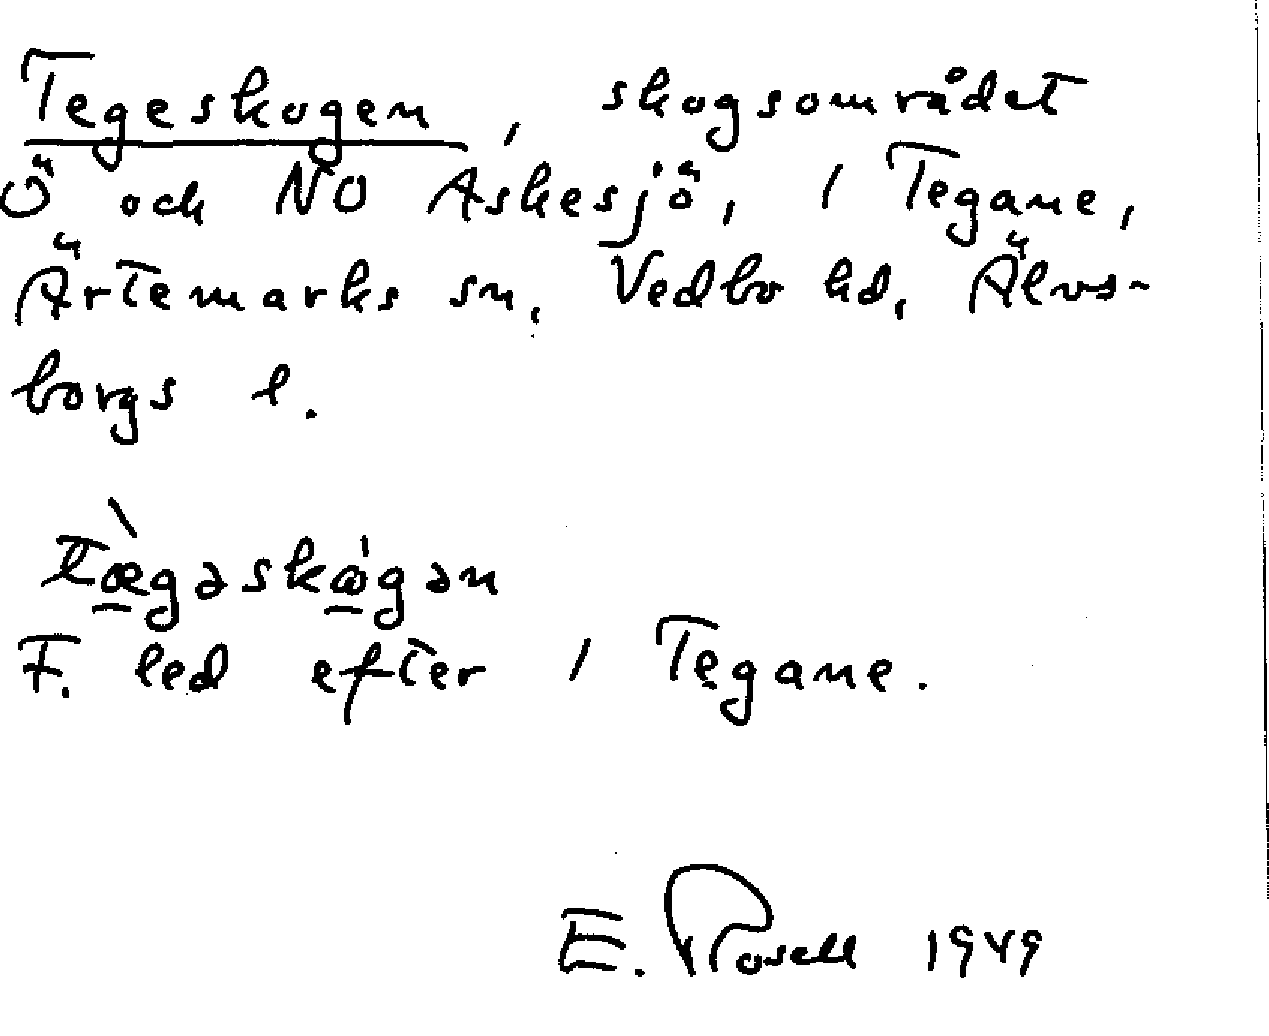 Tegeskogen, skogsområdet
Ö och NO Askesjö, / Tegane,
Ärtemarks sn, Vedbo hd, Älvs-
borgs l.
tæ̀gəskȯgən
F. led efter / Tegane.
E. Rosell 1949